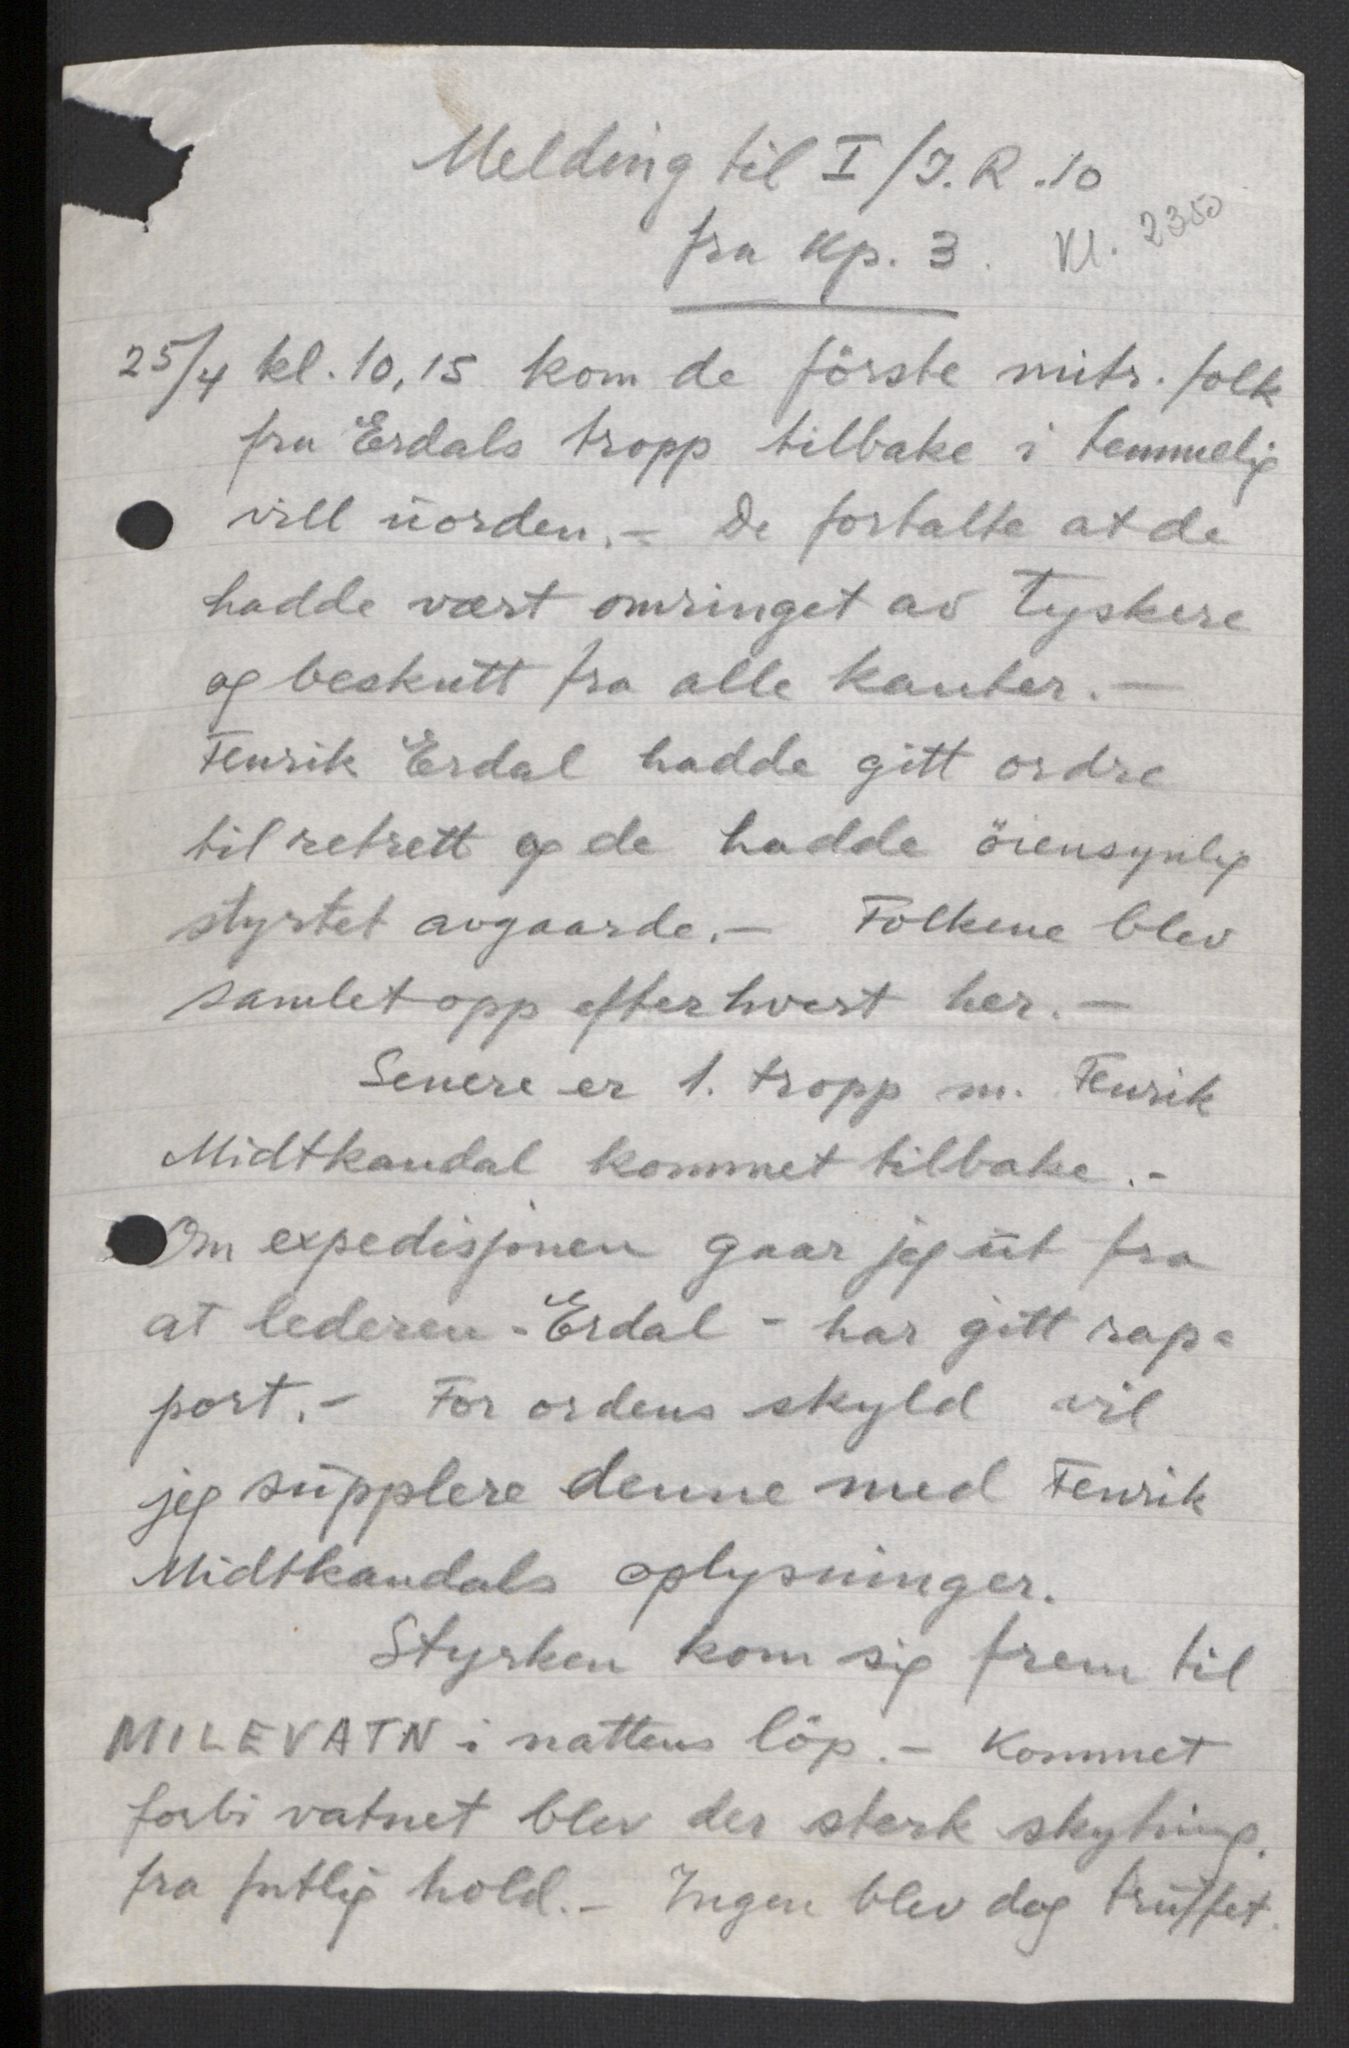 Melding til I/J.R.10
fra Kp. 3. Kl. 2350
25/4 kl. 10,15 kom de förste mitr. folk
fra Erdals tropp tilbake i temmelig
vill uorden. - De fortalte at de
hadde vært omringet av tyskere
og beskutt fra alle kanter. -
Fenrik Erdal hadde gitt ordre
til retrett og de hadde öiensynlig
styrtet avgaarde. - Folkene blev
samlet opp efterhvert her. -
Senere er 1. tropp m. Fenrik
Midtkandal kommet tilbake. -
Om expedisjonen gaar jeg ut fra
at lederen - Erdal - har gitt rap-
port. - For ordens skyld vil
jeg supplere denne med Fenrik
Midtkandals oplysninger.
Styrken kom sig frem til
MILEVATN i nattens löp. - Kommet
forbi vatnet blev der sterk skytning
fra fientlig hold. - Ingen blev dog truffet.